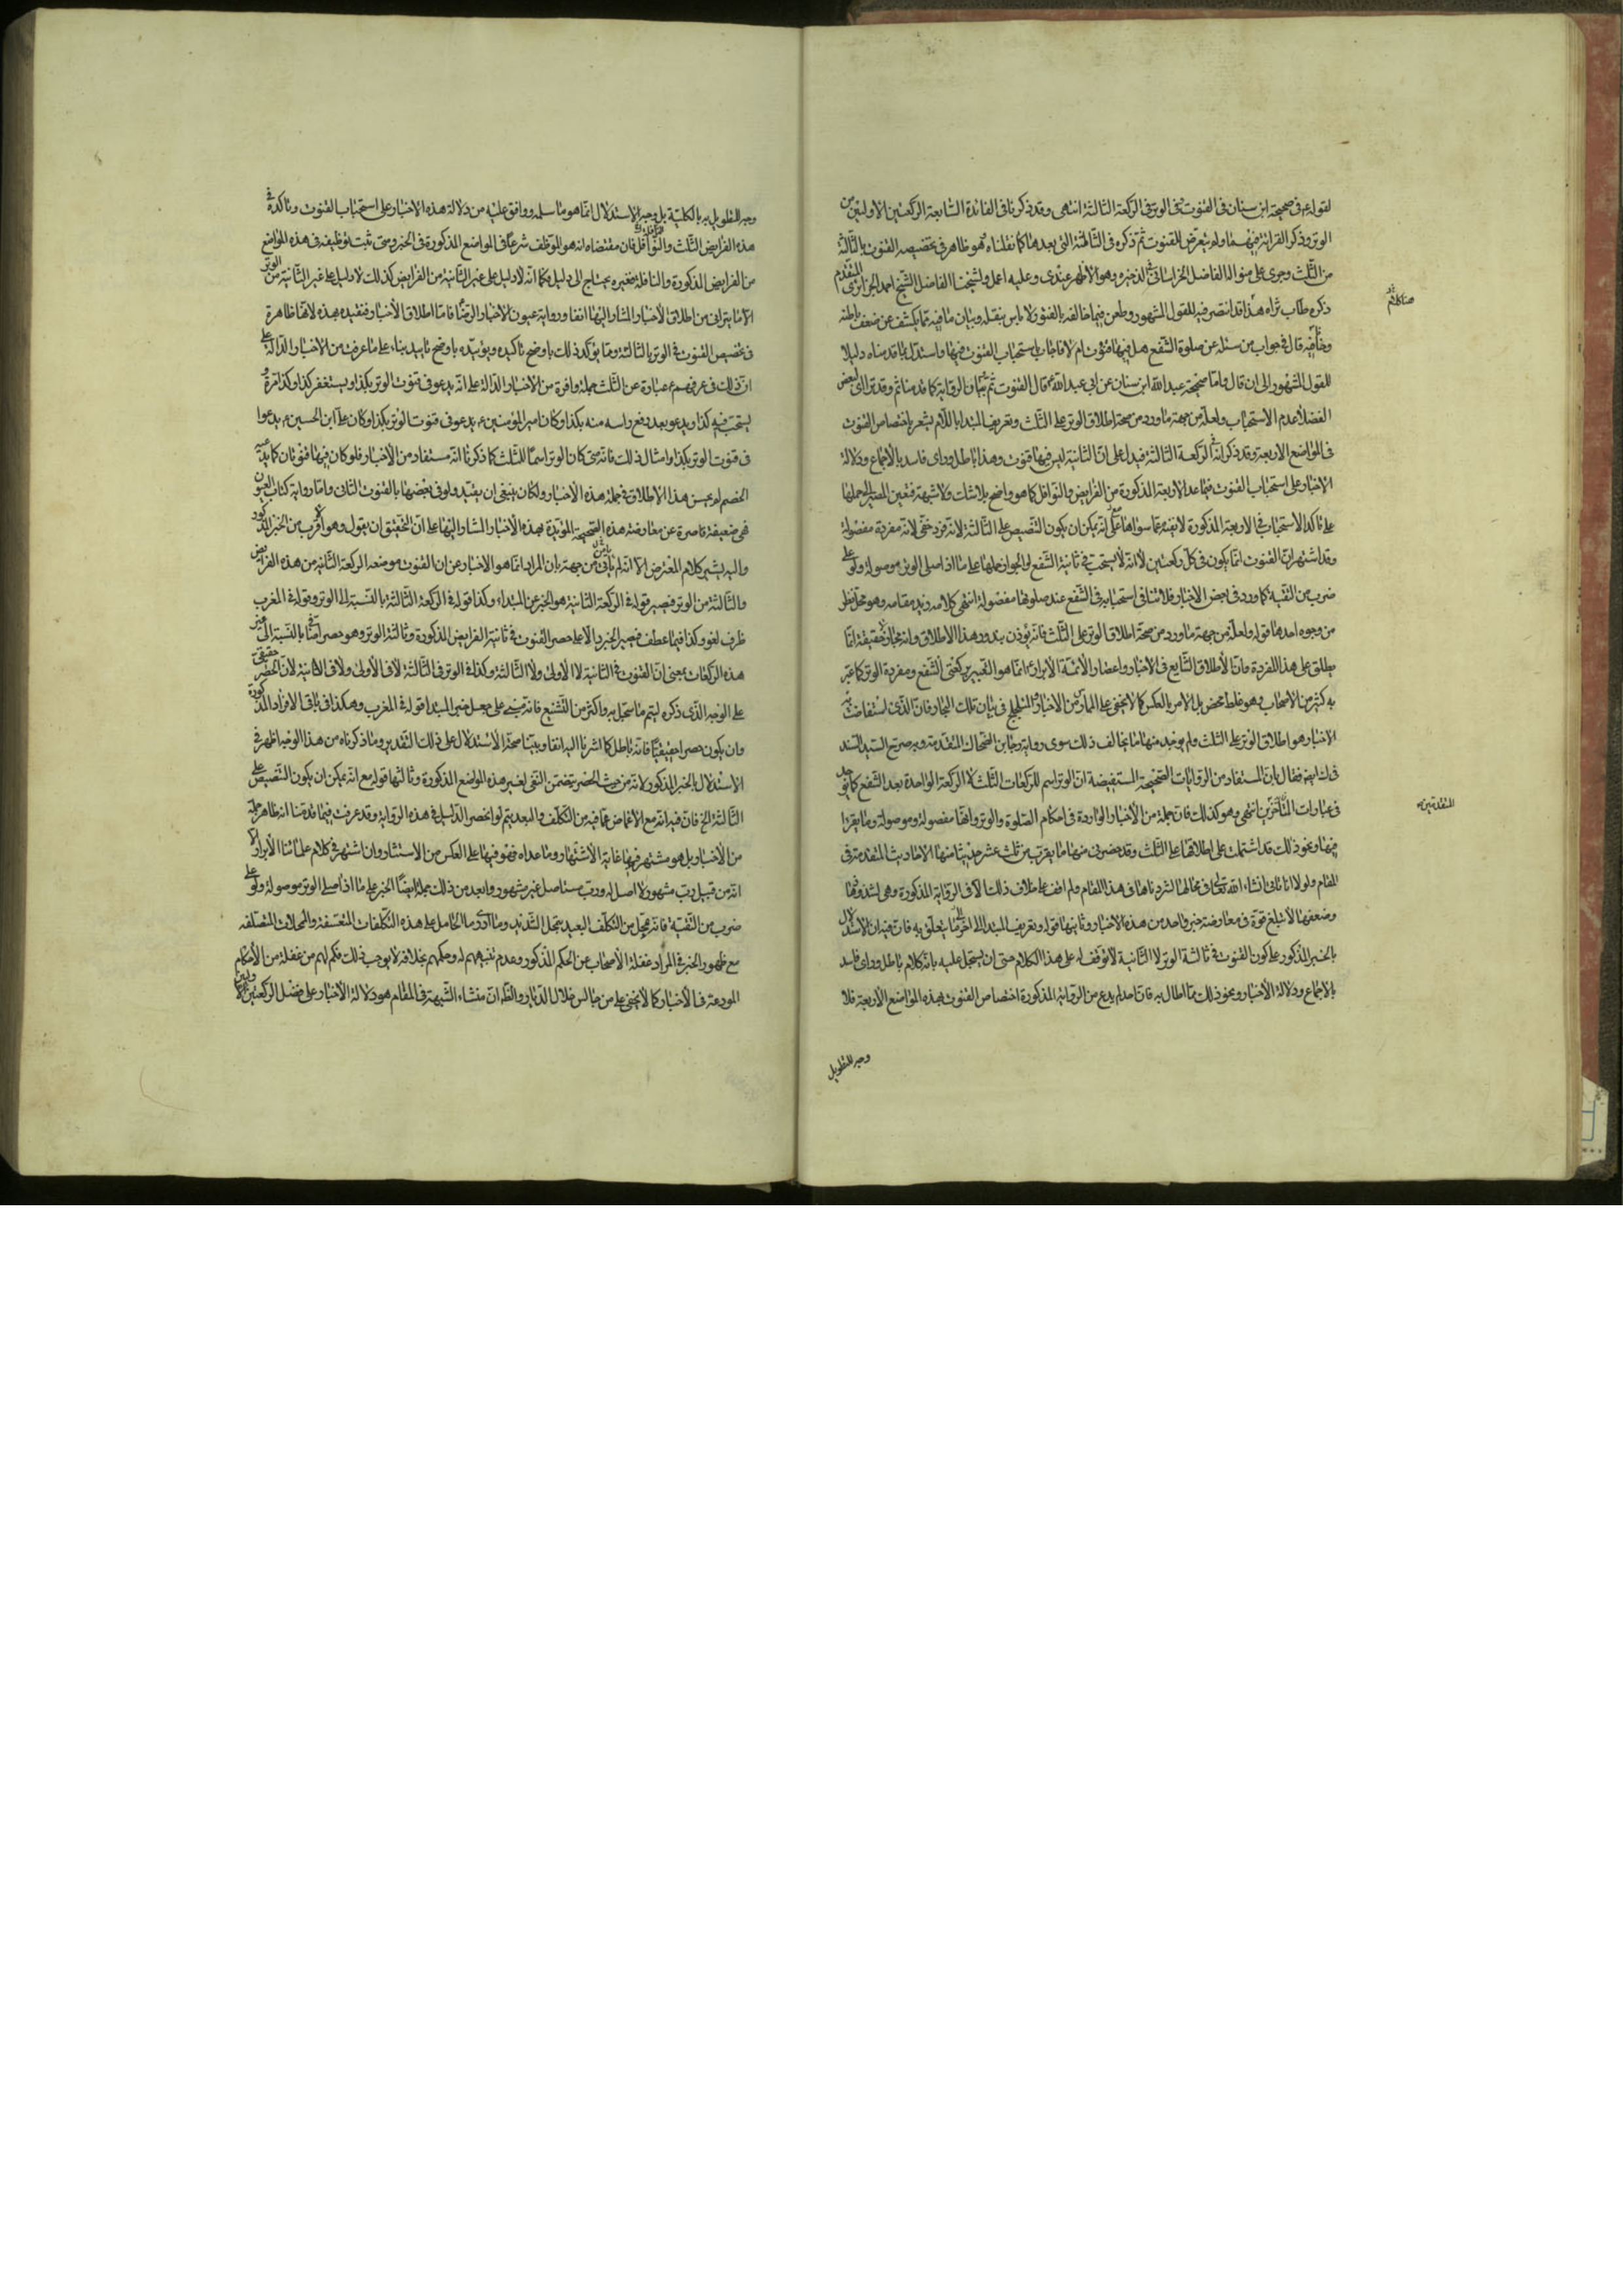 لقوله ع في صحيحة ابن سنان في القنوت في الوتر في الركعة الثالثة انتهى وقد ذكرنا في الفائدة السابعة الركعتين الاوليين من
الوتر وذكر القرائة فيهما ولم يتعرض للقنوت ثم ذكره في الثالثة التي بعدهما كما نقلناه فهو ظاهر في تخصيصه القنوت بالثالثة
من الثلث وجرى على منواله الفاضل الخراساني في الذخيرة وهو الاظهر عندي وعليه اعمل ولشيخنا الفاضل الشيخ احمد الجزايري المتقدم
ذكره طاب ثراه هنا قد انتصر فيه للقول المشهور وطعن فيما خالفه بالفتور لا باس بنقله وبيان ما فيه مما يكشف عن ضعف باطنه
وخافيه قال في جواب من سئله عن صلوة الشفع هل فيها قنوت ام لا فاجاب باستحباب القنوت فيها واستدل بما قدمناه دليلا
للقول المشهور الى ان قال واما صحيحة عبد الله ابن سنان عن ابي عبد الله ع قال القنوت ثم بيان الرواية كما قدمنا ثم وقد ترائى لبعض
الفضلاء عدم الاستحباب ولعله من جهة ما ورد من صحة اطلاق الوتر على الثلث وتعريف المبتدا باللام يشعر باختصاص القنوت
في المواضع الاربعة وقد ذكر انه في الركعة الثالثة فيدل على ان الثانية ليس فيها قنوت وهذا باطل وراى فاسد بالاجماع ودلالة
الاخبار على استحباب القنوت فيما عدا الاربعة المذكورة من الفرايض والنوافل كما هو واضح بلا شك ولا شبهة فتعين المصير الى حملها
على تاكد الاستحباب في الاربعة المذكورة لا نفيه عما سواها على انه يمكن ان يكون التنصيص على الثالثة لانه فرد خفي لانه مفردة مفصولة
وقد اشتهر ان القنوت انما يكون في كل ركعتين لا انه لا يستحب في ثانية الشفع او الجواز حملها على ما اذا صلى الوتر موصولة ولو على
ضرب من التقية كما ورد في بعض الاخبار فلا تنافي استحبابه في الشفع عند صلوتها مفصولة انتهى كلامه زيد مقامه وهو محل نظر
من وجوه احدها قوله ولعله من جهة ما ورد من صحة اطلاق الوتر على الثلث فانه يؤذن بندور هذا الاطلاق وانه مجاز لا حقيقة انما
يطلق على هذا المفردة وان الاطلاق الشايع في الاخبار واعصار الائمة الابرار ع انما هو التعبير بركعتي الشفع ومفردة الوتر كما عبر
به كثير من الاصحاب وهو غلط محض بل الامر بالعكس كما لا يخفى على المار في الاخبار والمتطلع في تلك البحار فان الذي استفاضت به
الاخبار هو اطلاق الوتر على الثلث ولم يوجد منها ما يخالف ذلك سوى رواية رجا بن الضحاك المتقدمة وبه صرح السيد السند
في ك ايضا فقال بان المستفاد من الروايات الصحيحة المستفيضة ان الوتر اسم للركعات الثلث لا الركعة الواحدة بعد الشفع كما يوجد
في عبارات المتاخرين انتهى وهو كذلك فان جملة من الاخبار الواردة في احكام الصلوة والوتر وانها مفصولة وموصولة وما يقرا
فيها ونحو ذلك قد اشتملت على اطلاقها على الثلث وقد حضرني منها ما يقرب من ثلث عشر حديثا منها الاحاديث المتقدمة في
المقام ولولا انا ناتي انشاء الله تعالى في محالها لسردناها في هذا المقام ولم اقف على خلاف ذلك الا في الرواية المذكورة وهي لشذوذها
وضعفها لا تبلغ قوة في معارضة خبر واحد من هذه الاخبار وثانيها قوله وتعريف المبتدا الى اخر ما يتعلق به فان فيه ان الاستدلال
بالخبر المذكور على كون القنوت في ثالثة الوتر لا الثانية لا توقف له على هذا الكلام حتى ان يستحيل عليه بانه كلام باطل وراى فاسد
بالاجماع ودلالة الاخبار ونحو ذلك مما اطال به فان احدا لم يدع من الرواية المذكورة اختصاص القنوت بهذه المواضع الاربعة فلا
وجه للتطويل
المتقدمين
وجه للتطويل به بالكلية بل وجه الاستدلال انما هو ما سلمه ووافق عليه من دلالة هذه الاخبار على استحباب القنوت وتاكده في
هذه الفرايض الثلث والنوافل فان مقتضاه انه هو الموظف شرعا في المواضع المذكورة في الخبر ومتى ثبت توظيفه في هذه المواضع
من الفرايض المذكورة والنافلة فغيره يحتاج الى دليل فكما انه لا دليل على غير الثانية من الفرايض كذلك لا دليل على غير الثانية من الوتر
الا ما يترائى من اطلاق الاخبار المشار اليها انفا ورواية عيون الاخبار الرضا فاما اطلاق الاخبار فنقيده بهذه لانها ظاهرة
في تخصيص القنوت في الوتر بالثالثة ومما يؤكد ذلك باوضح تاكيد ويؤيده باوضح تاييد بناء على ما عرفت من الاخبار الدالة على
ان ذلك في عرفهم ع عبارة عن الثلث جملة وافرة من الاخبار الدالة على انه يدعو في قنوت الوتر بكذا ويستغفر كذا وكذا مرة و
يستحب فيه كذا ويدعو بعد رفع راسه منه بكذا وكان امير المؤمنين ع يدعو في قنوت الوتر بكذا وكان علي ابن الحسين ع يدعوا
في قنوت الوتر بكذا وامثال ذلك فانه متى كان الوتر اسما للثلث كما ذكرنا انه مستفاد من الاخبار فلو كان فيها قنوتان كما يدعيه
الخصم لم يحسن هذا الاطلاق في جملة هذه الاخبار ولكان ينبغي ان يقيد ولو في بعضها بالقنوت الثاني واما رواية كتاب العيون
فهي ضعيفة قاصرة عن معارضة هذه الصحيحة المؤيدة بهذه الاخبار المشار اليها على ان التحقيق ان يقول وهو الاقرب من الخبر المذكور
واليه يشير كلام المعترض الا انه لم يات من جهة بان المراد انما هو الاخبار عن ان القنوت موضعه الركعة الثانية من هذه الفرايض
والثالثة من الوتر فيصير قوله في الركعة الثانية هو الخبر عن المبتداء وكذا قوله في الركعة الثالثة بالنسبة الى الوتر وقوله في المغرب
ظرف لغو وكذا فيما عطف فيصير الخبر دالا على حصر القنوت في ثانية الفرايض المذكورة وثالثة الوتر وهو حصر اضافي بالنسبة الى غير
هذه الركعات بمعنى ان القنوت في الثانية لا الاولى ولا الثالثة وكذا في الوتر في الثالثة لا في الاولى ولا في الثانية لا ان الحصر حقيقي
على الوجه الذي ذكره ليتم ما سجل به واكثر من التشنيع فانه مبني على جعل خبر المبتدا قوله في المغرب وهكذا في باقي الافراد المذكورة
وان يكون حصرا حقيقيا فانه باطل كما اشرنا اليه انفا وبينا صحة الاستدلال على ذلك التقدير وما ذكرناه من هذا الوجه اظهر في
الاستدلال بالخبر المذكور لانه من حيث الحصر يتضمن النفي لغير هذه المواضع المذكورة وثالثها قوله مع انه يمكن ان يكون التنصيص على
الثالثة الخ فان فيه انه مع الاغماض عما فيه من التكلف والبعد يتم لو انحصر الدليل في هذه الرواية وقد عرفت فيما قدمنا انه ظاهر جملة
من الاخبار بل هو مشتهر فيها غاية الاشتهار وما عداه فهو فيها على العكس من الاستتار وان اشتهر في كلام علمائنا الابرار الا
انه من قبيل رب مشهور لا اصل له ورب متاصل غير مشهور وابعد من ذلك حمله ايضا الخبر على ما اذا صلى الوتر موصولة ولو على
ضرب من التقية فانه محل من التكلف البعيد بمحل الشديد وما ما الحامل على هذه التكلفات المتعسفة والمحملات المتصلفة
مع ظهور الخبر في المراد غفلة الاصحاب عن الحكم المذكور وعدم تنبههم له وحكمهم بخلافه لا يوجب ذلك فكم لهم من غفلة من الاحكام
المودعة في الاخبار كما لا يخفى على من جالس خلال الديار والظاهر ان منشاء الشبهة في المقام هو دلالة الاخبار على فصل الركعتين